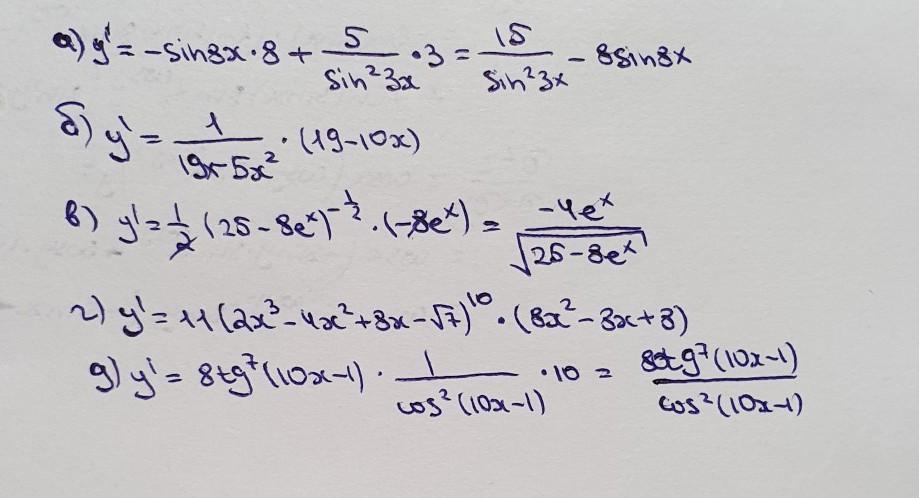 а) y' = -sin8x·8 + 5/sin²3x · 3 = 15/sin²3x - 8sin8x
б) y' = 1/(19x-5x²) · (19-10x)
в) y' = 1/2 (25-8eˣ)^(-1/2) · (-8eˣ) = -4eˣ/√(25-8eˣ)
г) y' = 11(2x³-4x²+8x-√7)¹⁰ · (8x²-8x+8)
д) y' = 8tg⁷(10x-1) · 1/cos²(10x-1) · 10 = 80tg⁷(10x-1)/cos²(10x-1)